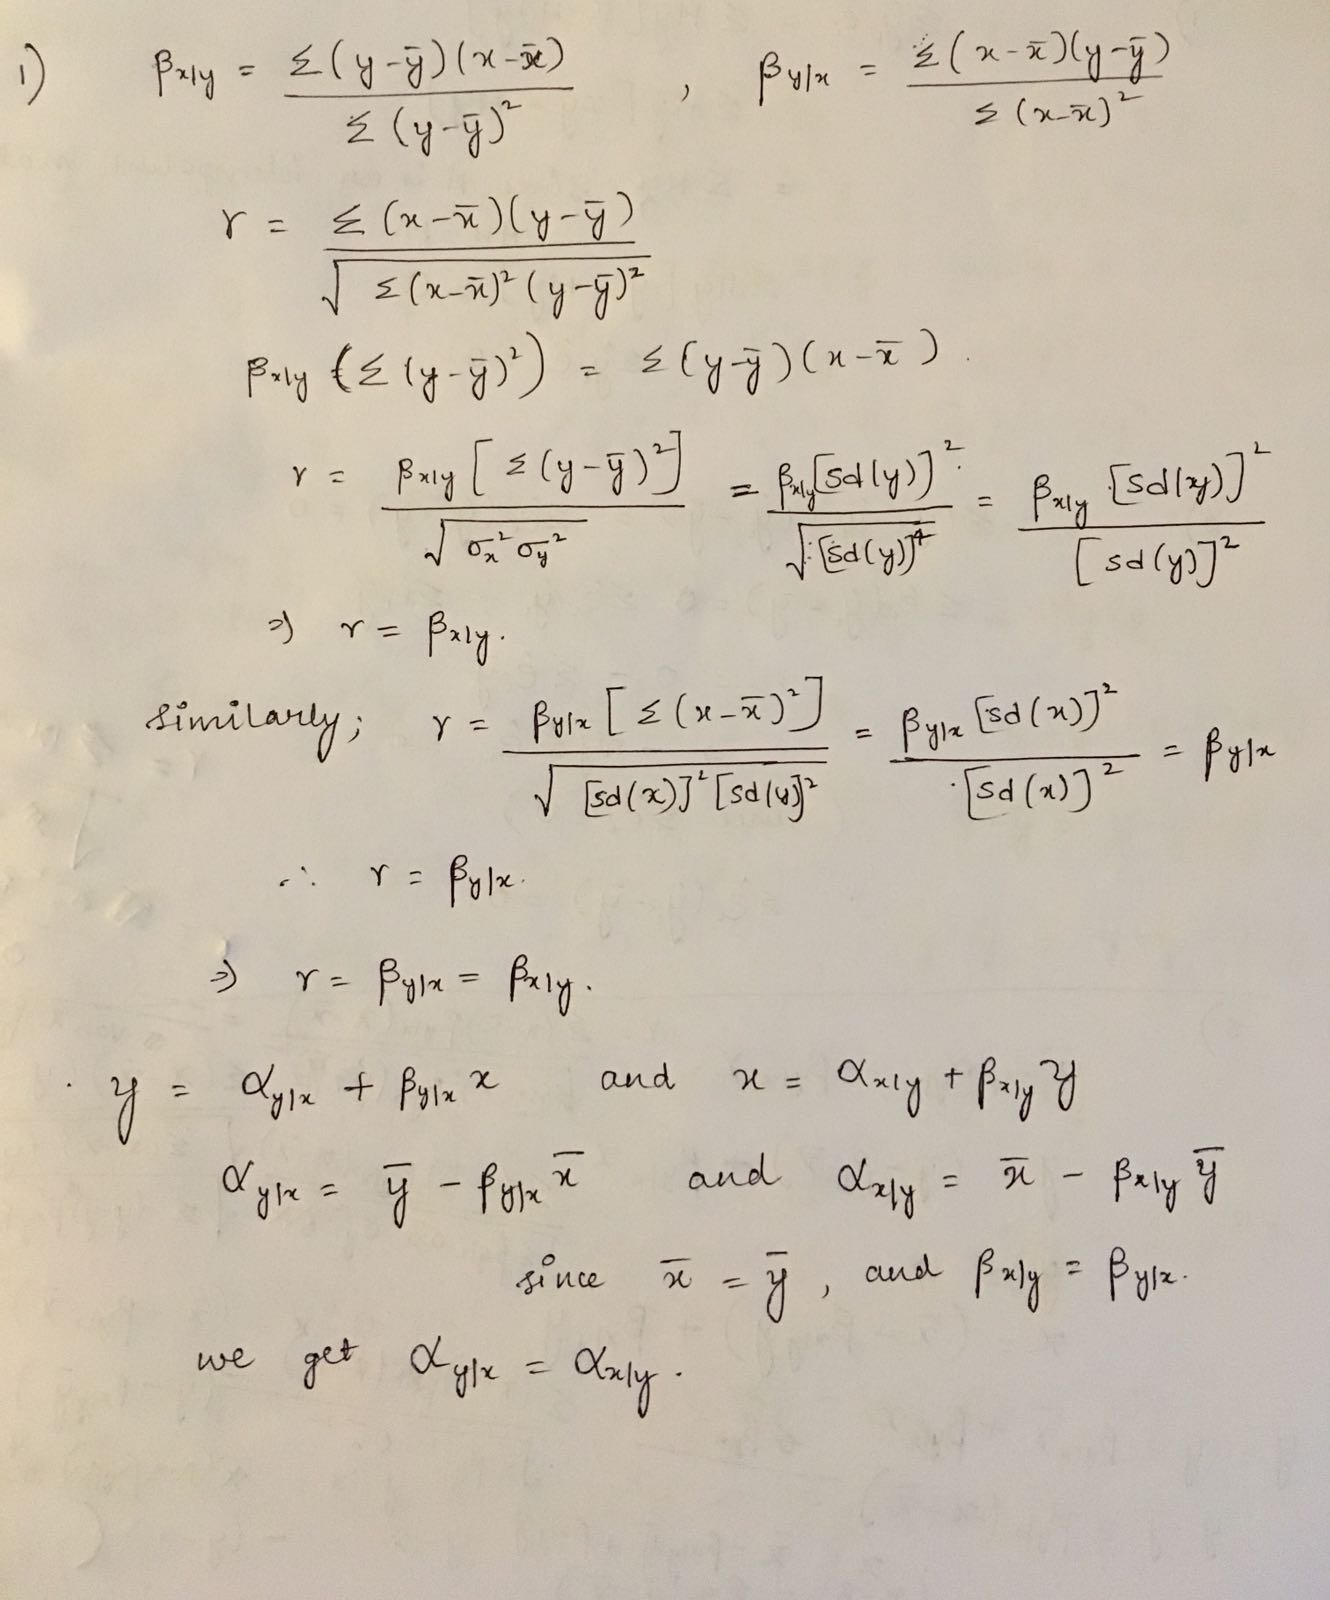 1) β_{x|y} = Σ(y-ȳ)(x-x̄) / Σ(y-ȳ)² , β_{y|x} = Σ(x-x̄)(y-ȳ) / Σ(x-x̄)²
r = Σ(x-x̄)(y-ȳ) / √(Σ(x-x̄)²(y-ȳ)²)
β_{x|y} (Σ(y-ȳ)²) = Σ(y-ȳ)(x-x̄).
r = β_{x|y}[Σ(y-ȳ)²] / √(σ_x² σ_y²) = β_{x|y}[sd(y)]² / √([sd(y)]⁴) = β_{x|y} [sd(y)]² / [sd(y)]²
⇒ r = β_{x|y}.
Similarly; r = β_{y|x}[Σ(x-x̄)²] / √([sd(x)]²[sd(y)]²) = β_{y|x}[sd(x)]² / [sd(x)]² = β_{y|x}
∴ r = β_{y|x}.
⇒ r = β_{y|x} = β_{x|y}.
. y = α_{y|x} + β_{y|x} x and x = α_{x|y} + β_{x|y} y
α_{y|x} = ȳ - β_{y|x} x̄ and α_{x|y} = x̄ - β_{x|y} ȳ
since x̄ = ȳ, and β_{x|y} = β_{y|x}.
we get α_{y|x} = α_{x|y}.